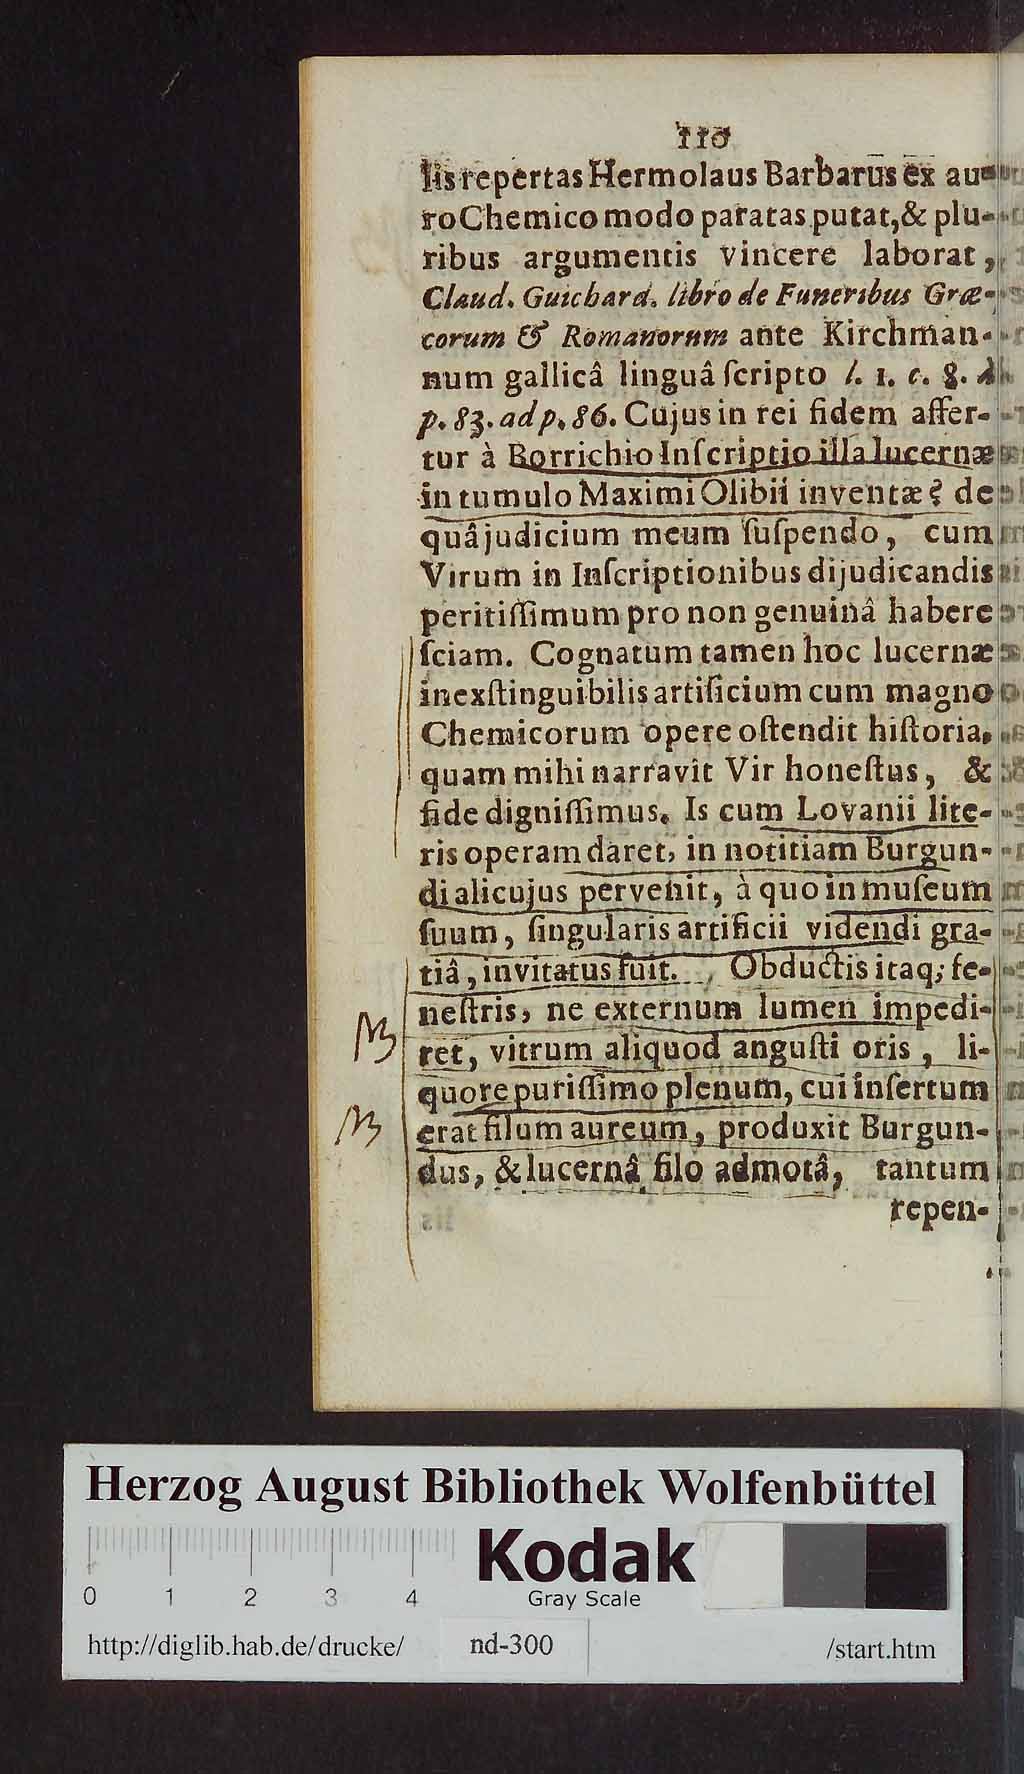 110
lis repertas Hermolaus Barbarus ex au-
ro Chemico modo paratas putat, & plu-
ribus argumentis vincere laborat,
Claud. Guichard. libro de Funeribus Græ-
corum & Romanorum ante Kirchman-
num gallicâ linguâ ſcripto l. 1. c. 8. à
p. 83. ad p. 86. Cujus in rei fidem affer-
tur à Borrichio Inſcriptio illa lucernæ
in tumulo Maximi Olibii inventæ; de
quâ judicium meum ſuſpendo, cum
Virum in Inſcriptionibus dijudicandis
peritiſſimum pro non genuinâ habere
ſciam. Cognatum tamen hoc lucernæ
inexſtinguibilis artificium cum magno
Chemicorum opere oſtendit hiſtoria,
quam mihi narravit Vir honeſtus, &
fide digniſſimus. Is cum Lovanii lite-
ris operam daret, in notitiam Burgun-
di alicujus pervenit, à quo in muſeum
ſuum, ſingularis artificii videndi gra-
tiâ, invitatus fuit. Obductis itaq; fe-
neſtris, ne externum lumen impedi-
NB
ret, vitrum aliquod anguſti oris, li-
quore puriſſimo plenum, cui inſertum
NB
erat filum aureum, produxit Burgun-
dus, & lucernâ filo admotâ, tantum
repen-
Herzog August Bibliothek Wolfenbüttel
Kodak
Gray Scale
0 1 2 3 4
http://diglib.hab.de/drucke/ nd-300 /start.htm